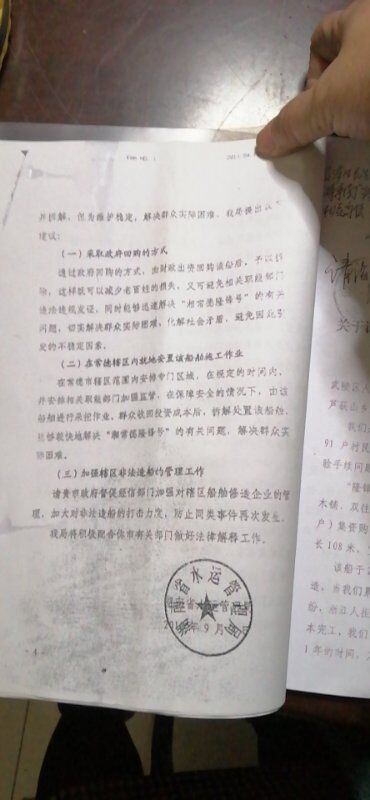 FAX NO. :
并拆解。但为维护稳定，解决群众实际困难，我局提出以下
建议：
（一）采取政府回购的方式
通过政府回购的方式，由财政出资回购该船后，予以拆
除，这样就可以减少老百姓的损失，又可避免相关职能部门
违法违规发证，同时能够迅速解决“湘常德隆锋号”的有关
问题，切实解决群众实际困难，化解社会矛盾，避免因此引
发的不稳定因素。
（二）在常德辖区内就地安置该船舶施工作业
在常德市辖区范围内安排专门区域，在规定的时间内，
并安排相关职能部门加强监管，在保障安全的情况下，由该
船舶进行采挖作业。群众收回投资成本后，拆解处置该船舶，
能够就快地解决“湘常德隆锋号”的有关问题，解决群众实
际困难。
（三）加强辖区非法造船的管理工作
请贵市政府督促经信部门加强对辖区船舶修造企业的管
理，加大对非法造船的打击力度，防止同类事件再次发生。
我局将积极配合你市有关部门做好法律解释工作。
省水运管理局
年9月
4
请
关于
武陵区人
芦荻山乡
我们
91 户村民
验手续问题
“隆锋
木镇，双往
户）集资购
长108米，
该船于
造，当我们
纷，浙江人担
本完工，我们
1年的时间。